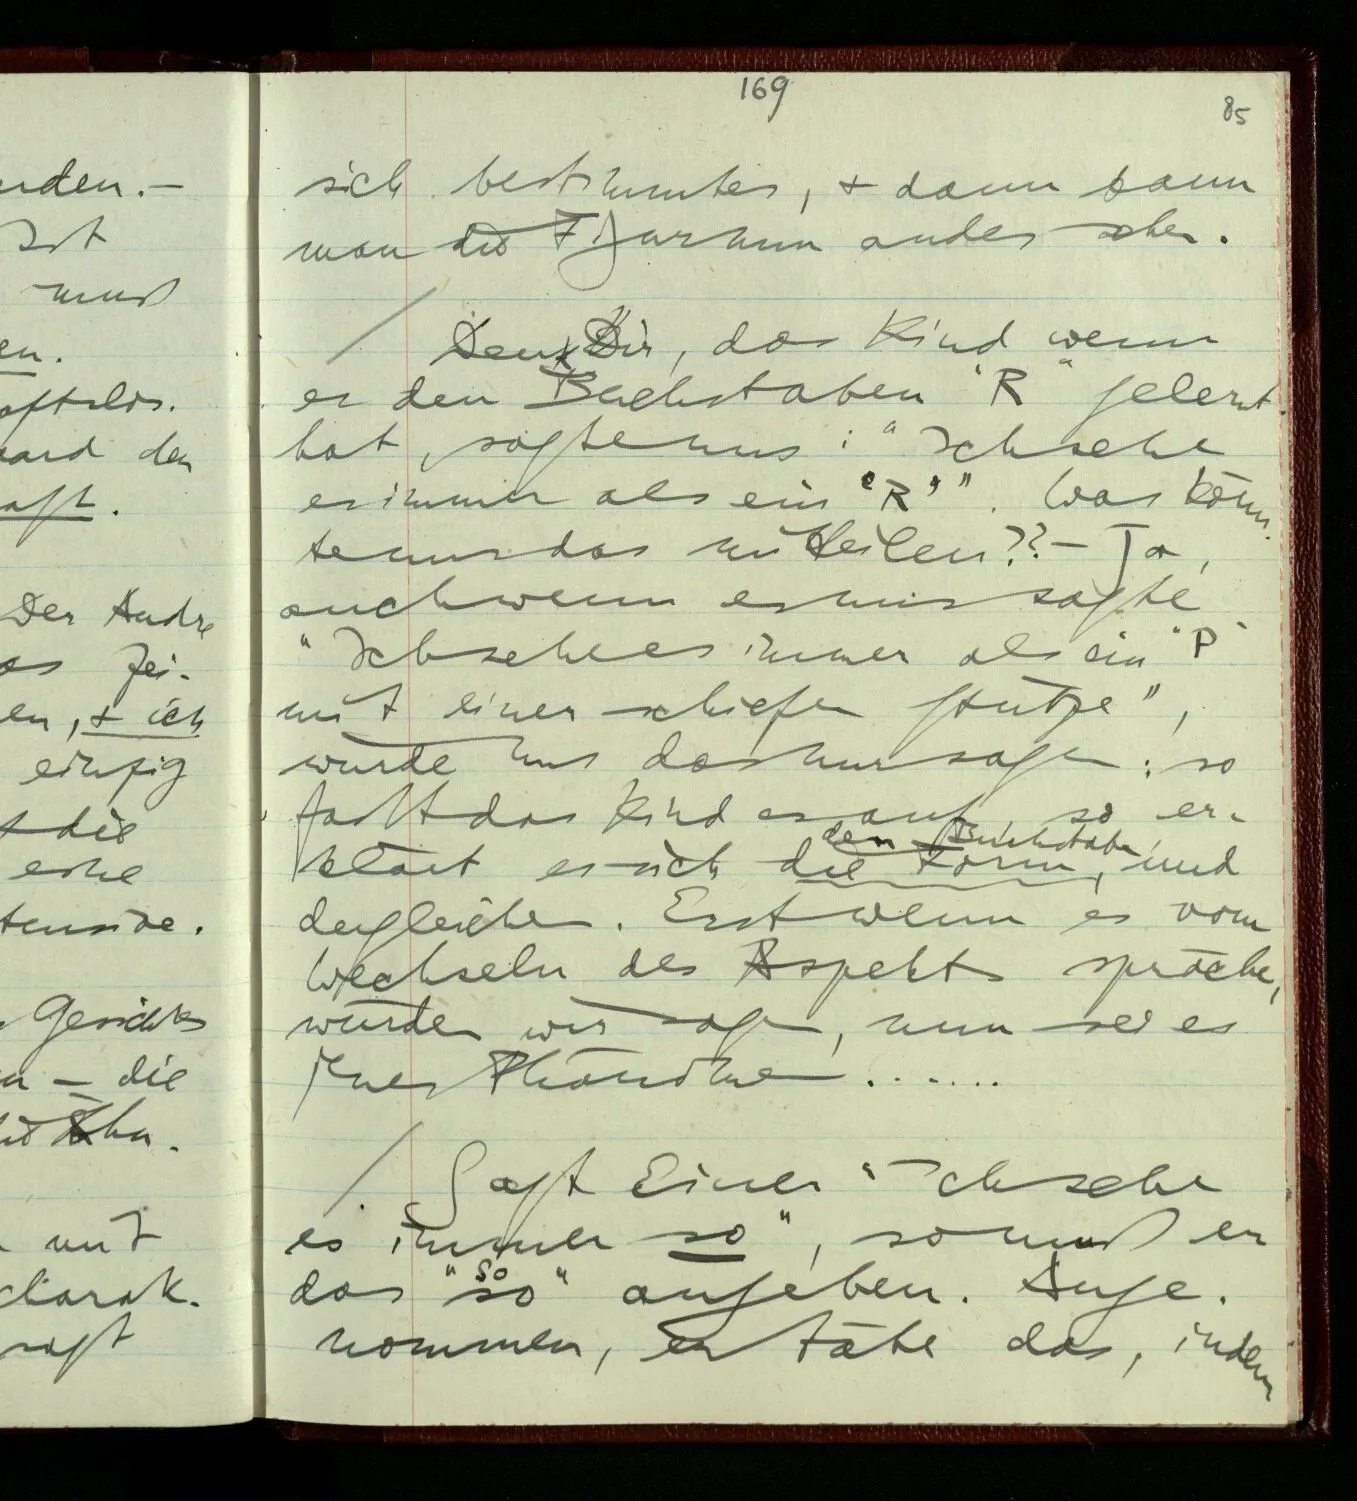 169
85
sich bestimmtes, + dann kann
man die Figur nun anders sehen.
/ Denk Dir, das Kind wenn
es den Buchstaben "R" gelernt
hat, sagte uns: "Ich sehe
es immer als ein 'R'". Was könn-
te uns das mitteilen?? – Ja,
auch wenn es uns sagte
"Ich sehe es immer als ein 'P'
mit einer schiefen Stütze",
würde uns das nur sagen: so
faßt das Kind es auf, so er-
den Buchstaben
klärt es sich die Form, und
dergleichen. Erst wenn es vom
Wechseln des Aspekts spräche,
würden wir sagen, nun sei es
jenes Phänomen.......
/ Sagt Einer "Ich sehe
es immer so", so muß er
so
das "so" angeben. Ange-
nommen, er täte das, indem
rden. –
Ist
muß
en.
aftslos.
ward den
aft.
Der Andre
as Zei-
en, + ich
einzig
die
eine
tensive.
Gesichts
– die
mit
charak-
sagt